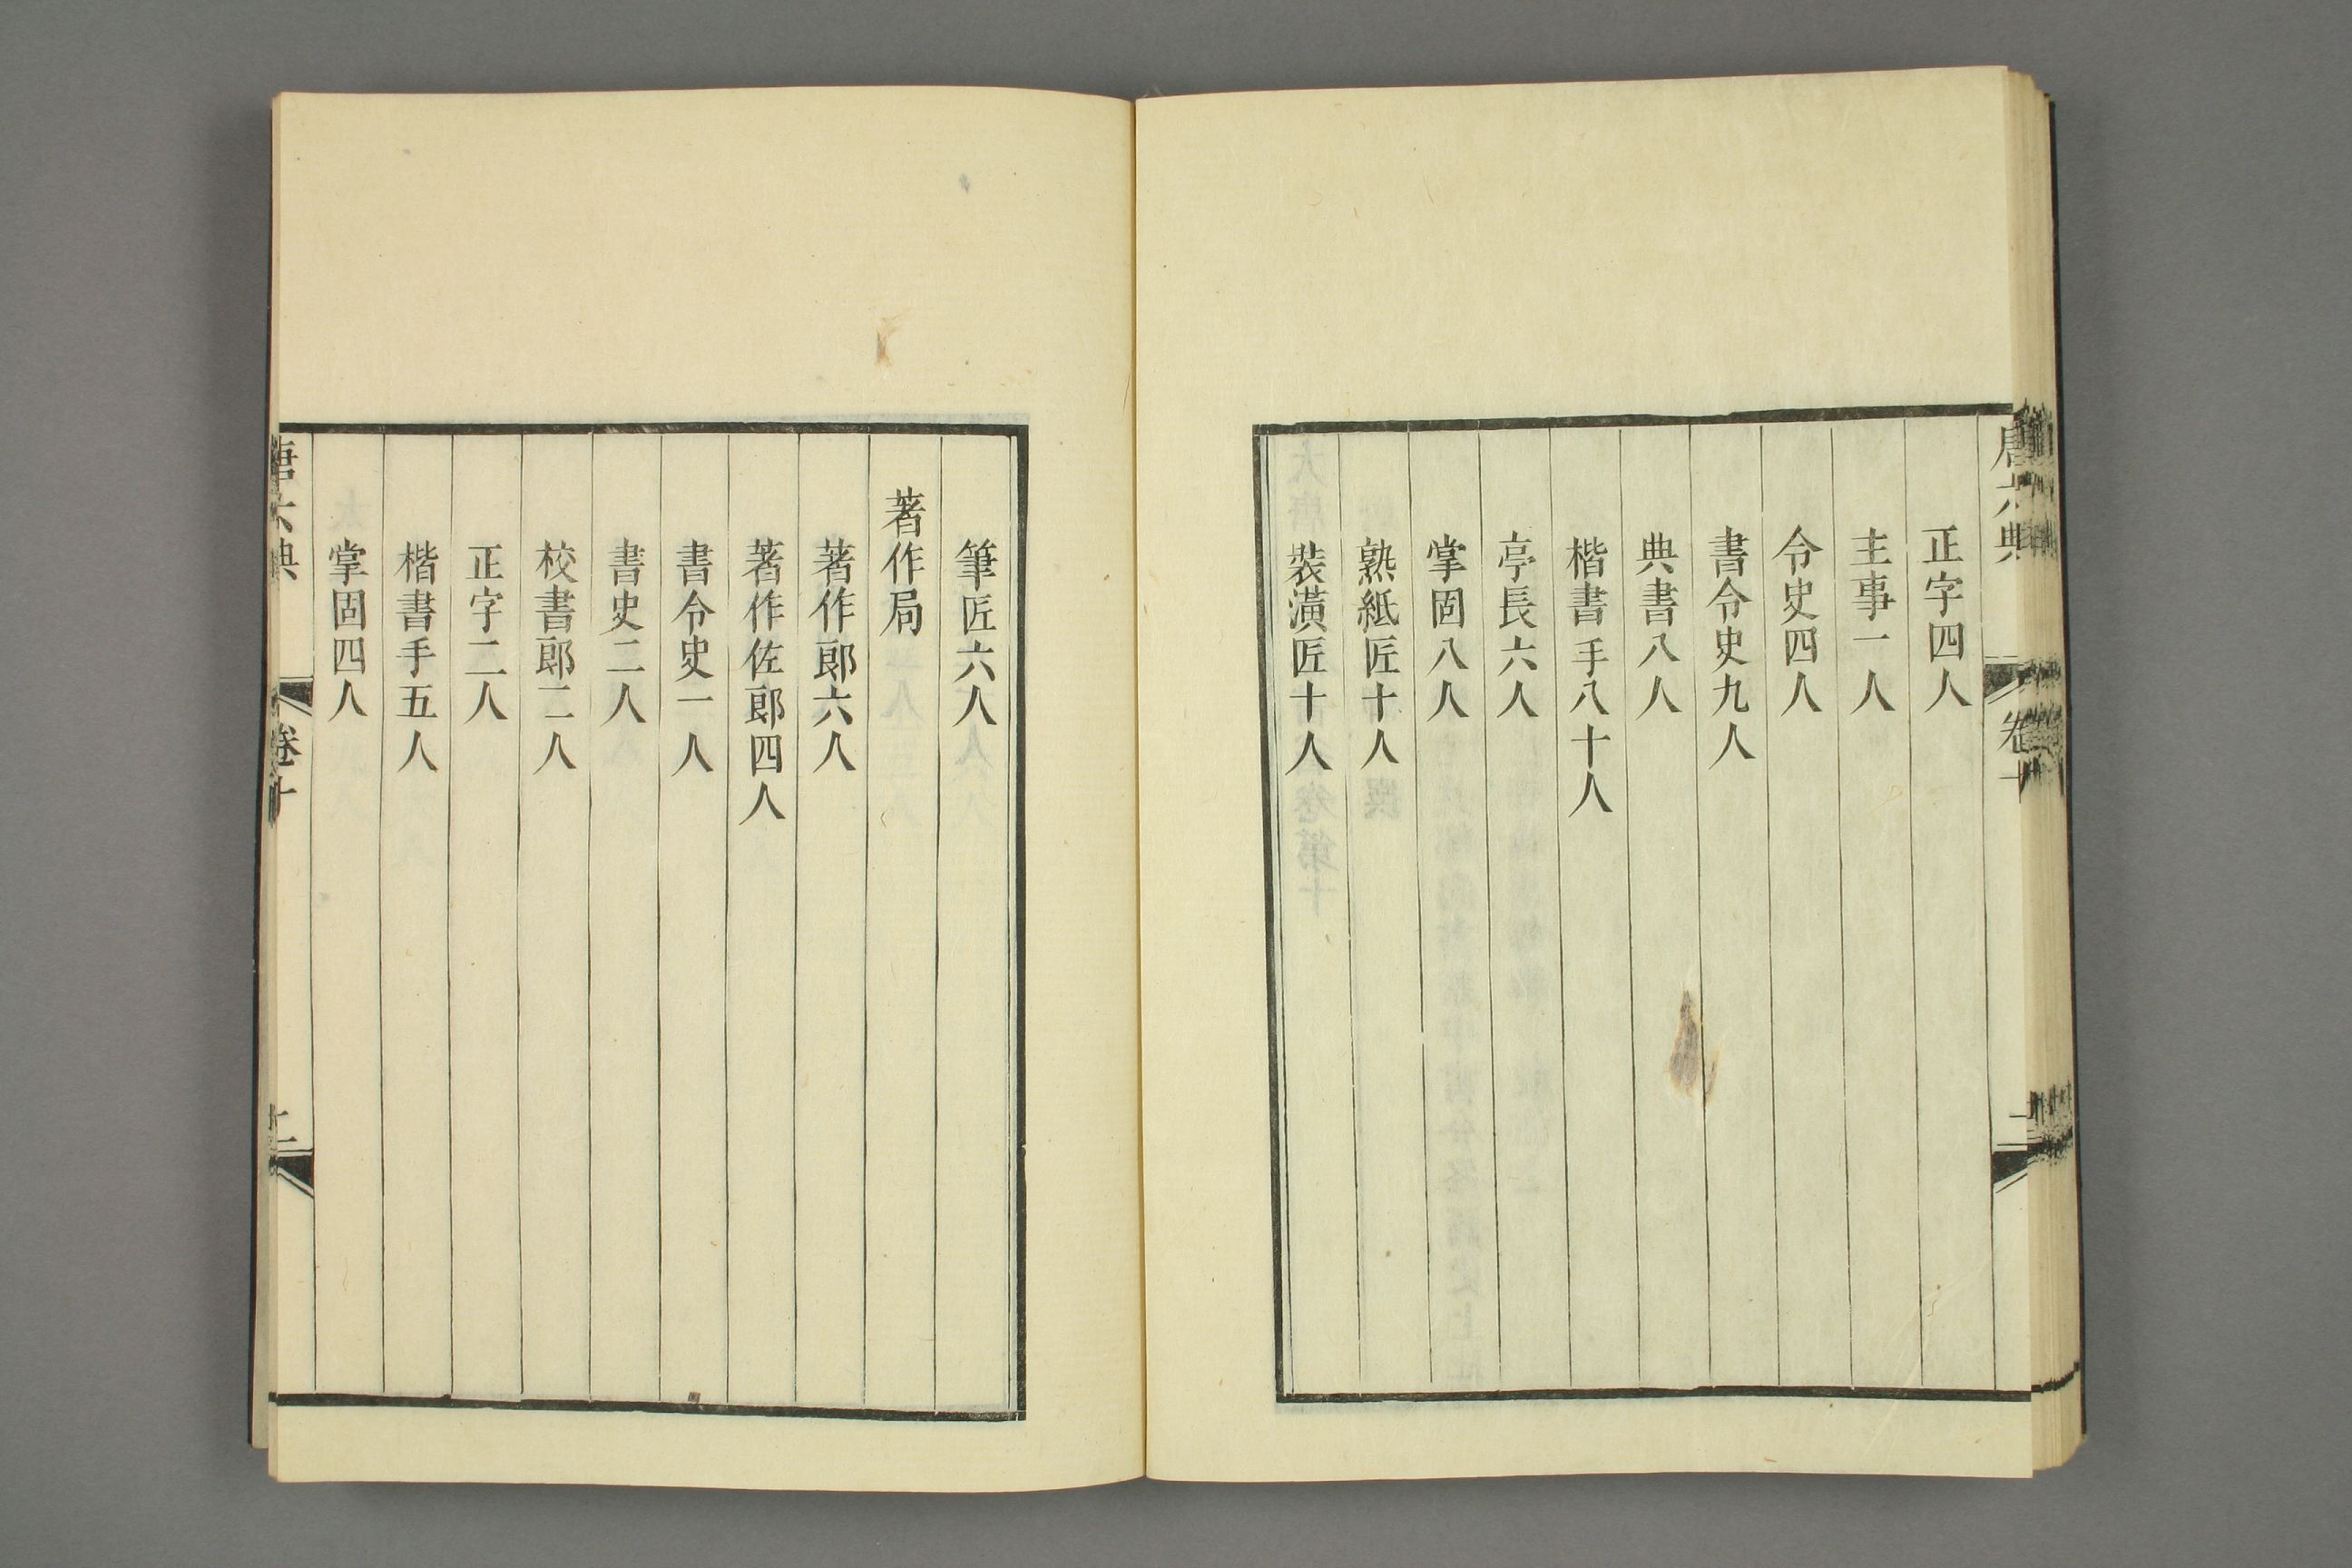 唐六典 卷十
正字四人
主事一人
令史四人
書令史九人
典書八人
楷書手八十人
亭長六人
掌固八人
熟紙匠十人
裝潢匠十人
筆匠六人
著作局
著作郎六人
著作佐郎四人
書令史一人
書史二人
校書郎二人
正字二人
楷書手五人
掌固四人
唐六典 卷十